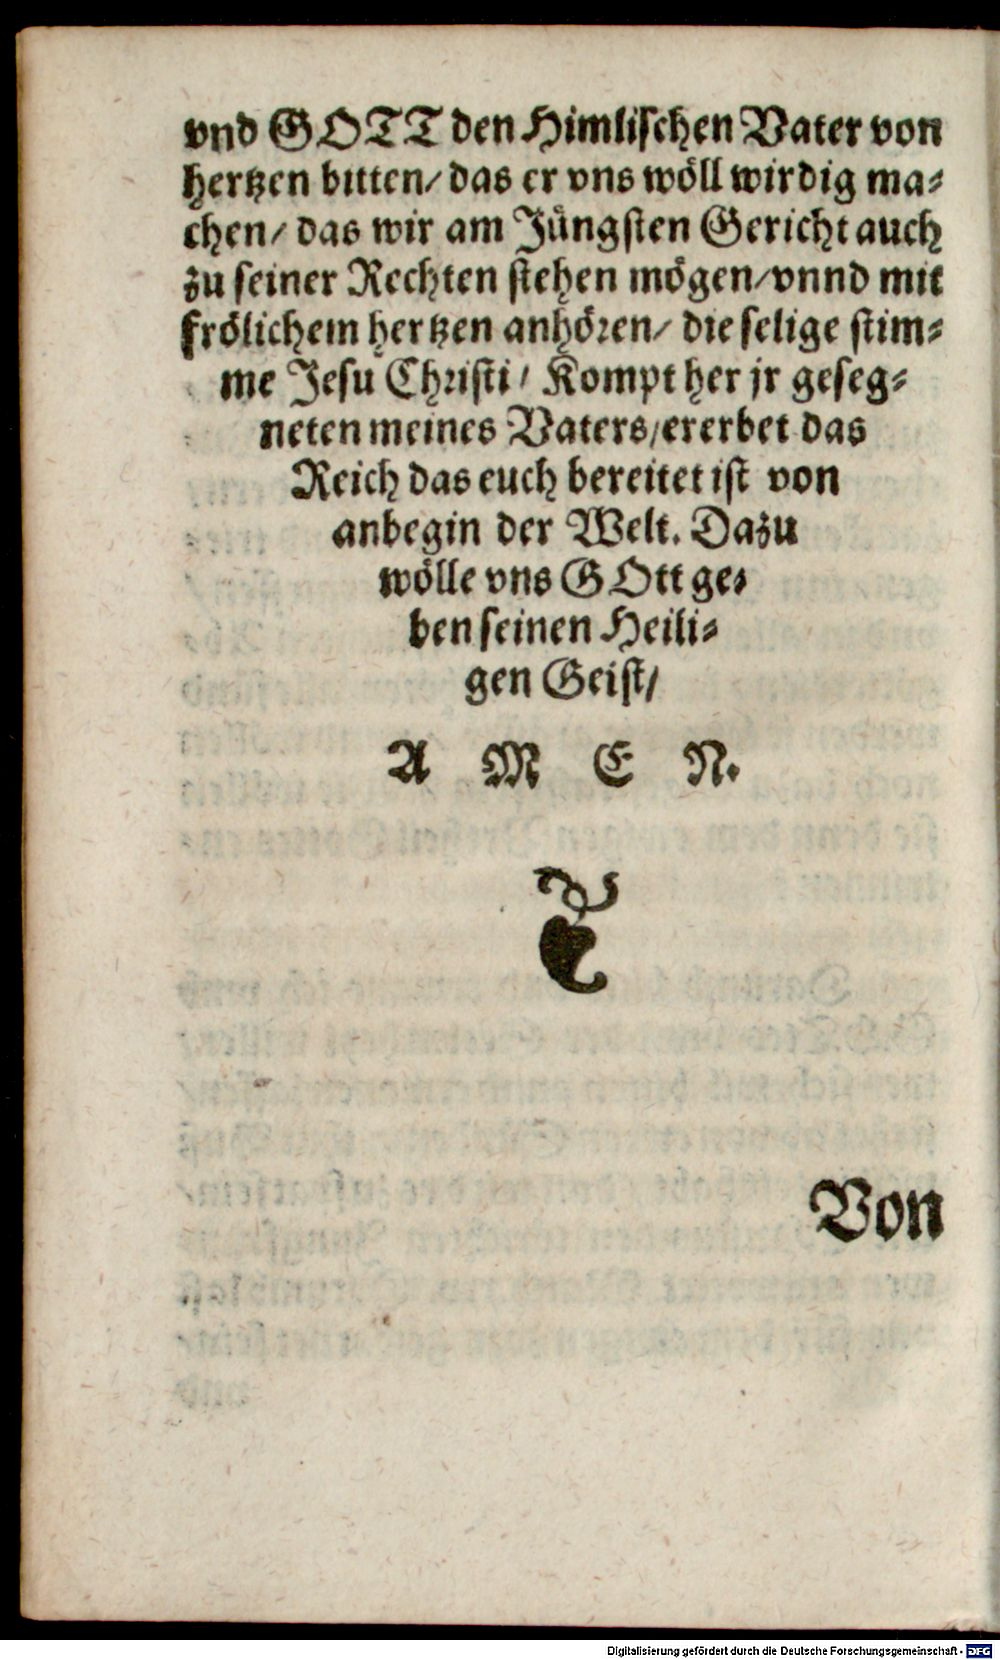 vnd GOTT den Himlischen Vater von
hertzen bitten/ das er vns wöll wirdig ma-
chen/ das wir am Jüngsten Gericht auch
zu seiner Rechten stehen mögen/ vnnd mit
frölichem hertzen anhören/ die selige stim-
me Jesu Christi/ Kompt her jr geseg-
neten meines Vaters/ ererbet das
Reich das euch bereitet ist von
anbegin der Welt. Dazu
wölle vns GOtt ge-
ben seinen Heili-
gen Geist/
A M E N.
Von
Digitalisierung gefördert durch die Deutsche Forschungsgemeinschaft - DFG